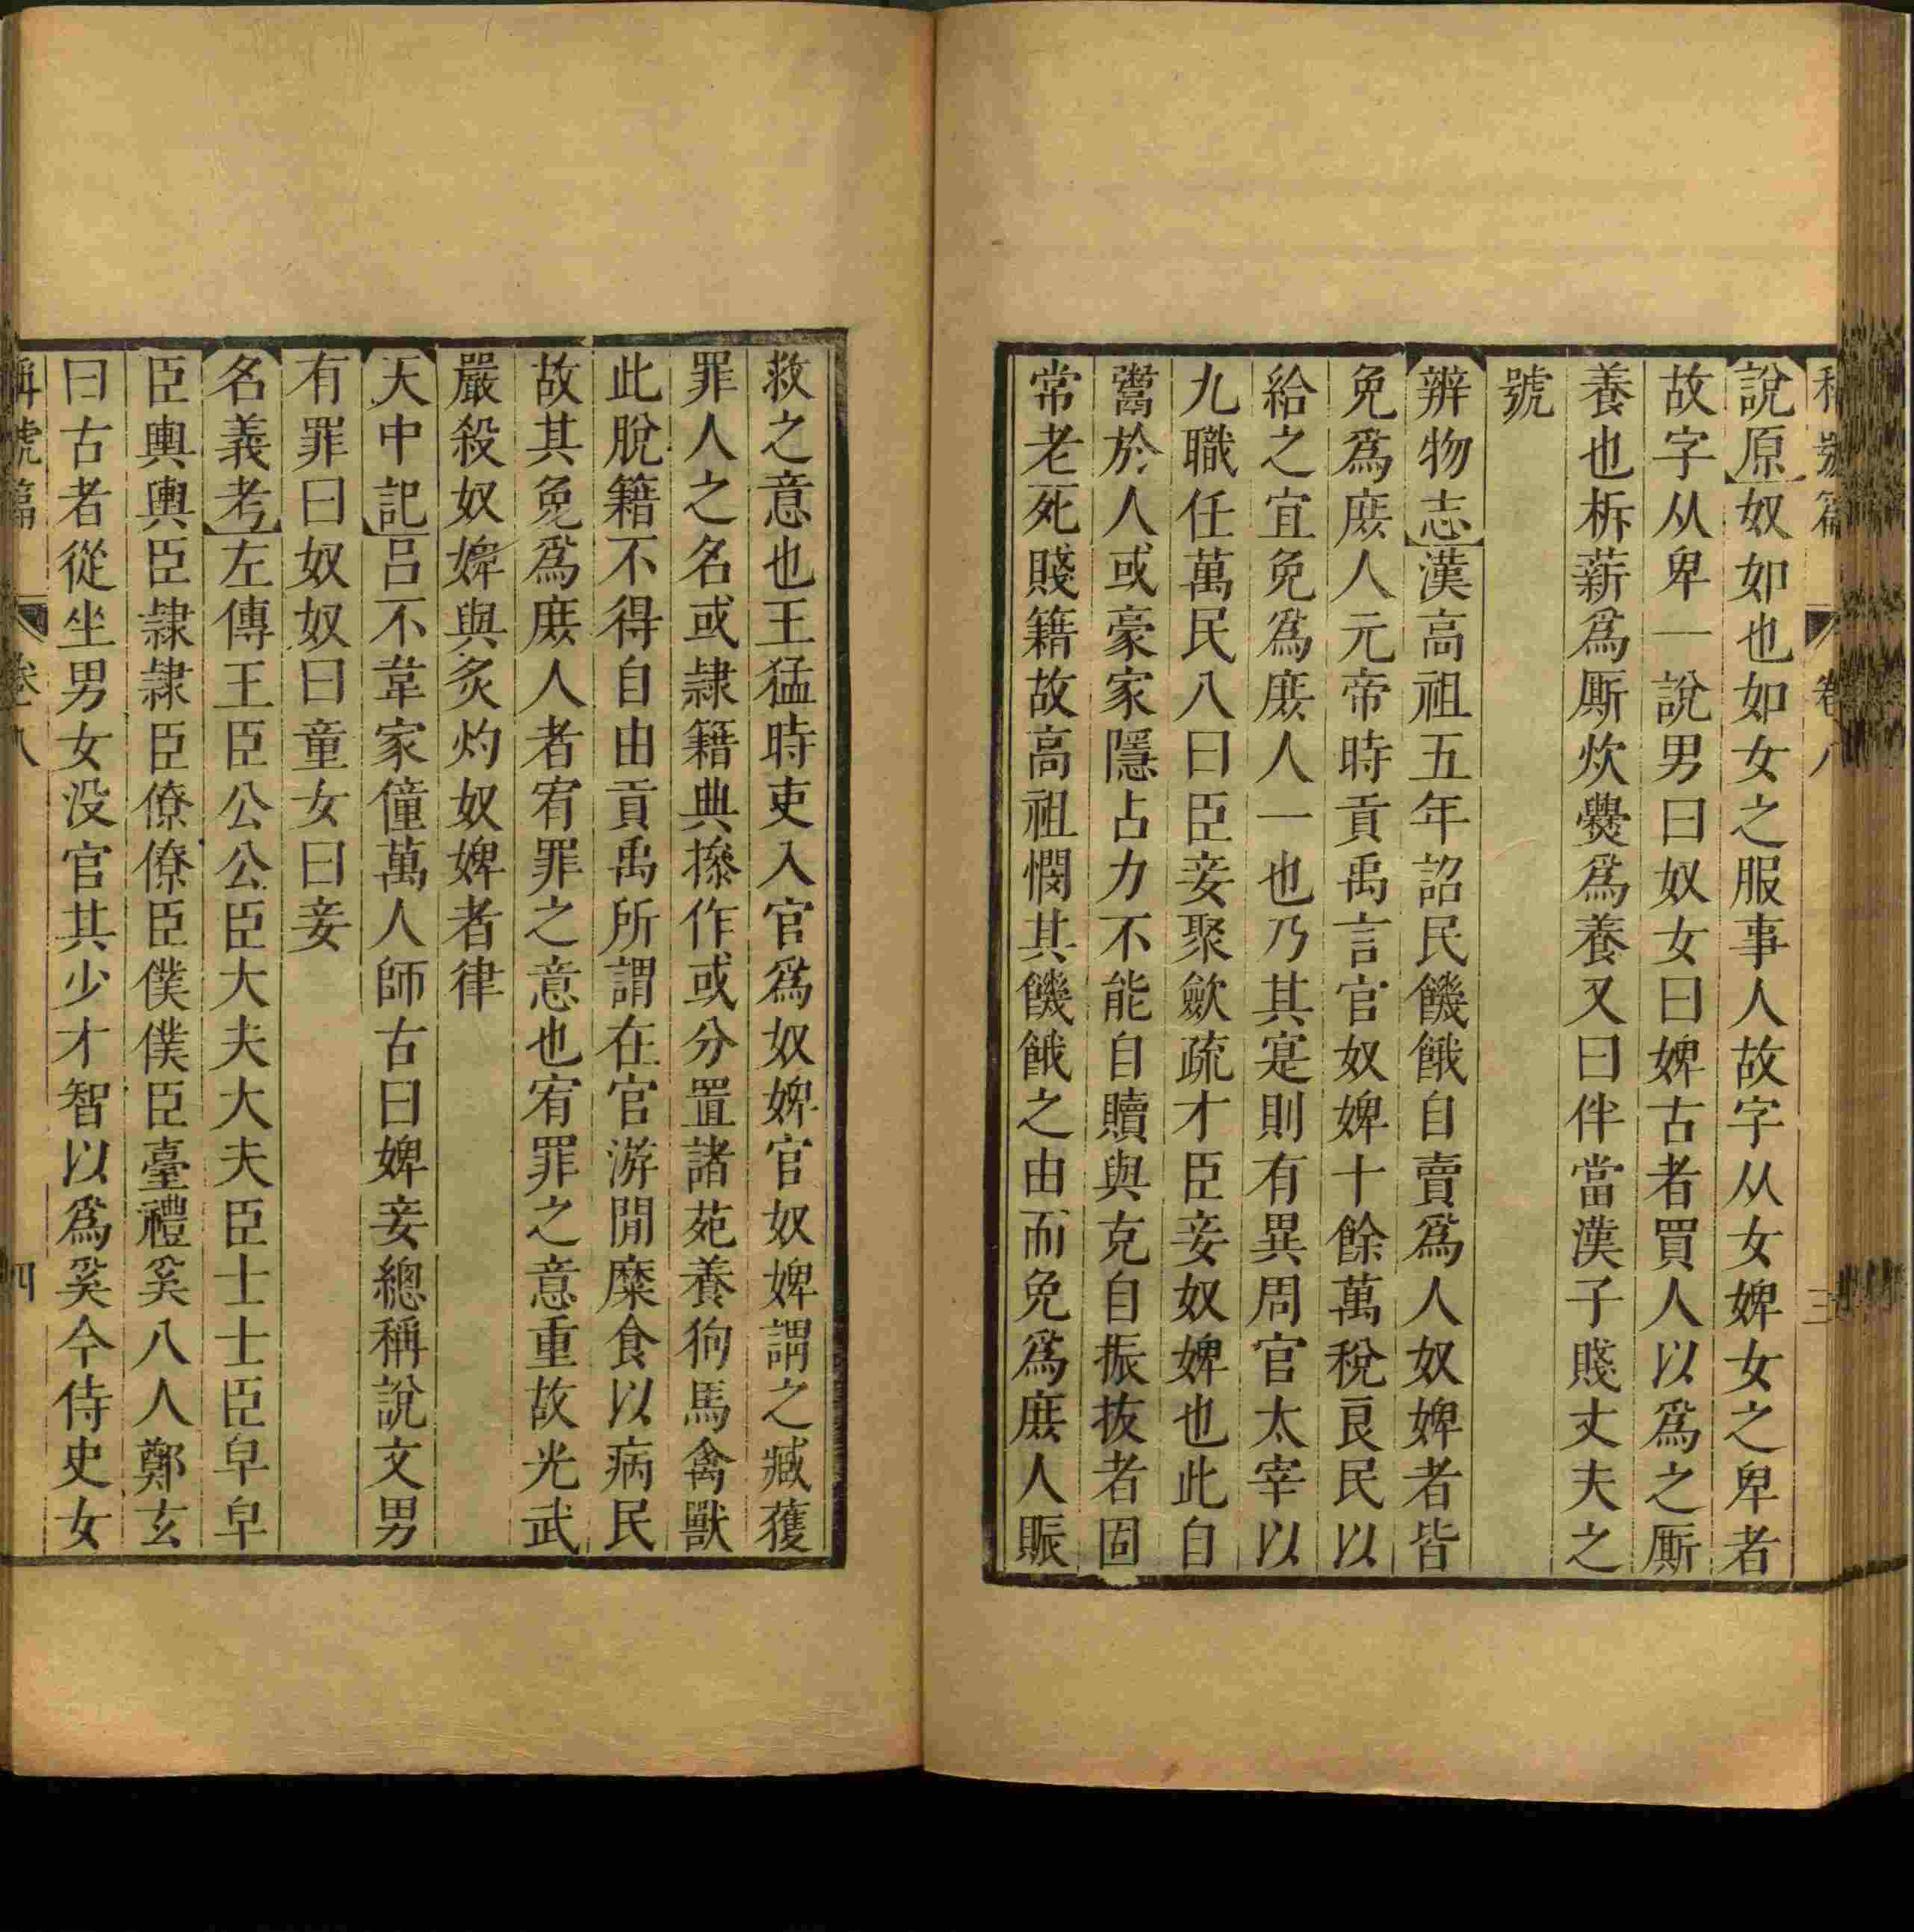 稱號篇 卷八 三
說原奴如也如女之服事人故字从女婢女之卑者
故字从卑一說男曰奴女曰婢古者買人以爲之厮
養也柝薪爲厮炊爨爲養又曰伴當漢子賤丈夫之
號
辨物志漢高祖五年詔民饑餓自賣爲人奴婢者皆
免爲庶人元帝時貢禹言官奴婢十餘萬稅良民以
給之宜免爲庶人一也乃其寔則有異周官太宰以
九職任萬民八曰臣妾聚歛疏才臣妾奴婢也此自
鬻於人或豪家隱占力不能自贖與克自振抜者固
常老死賤籍故高祖憫其饑餓之由而免爲庶人賑
救之意也王猛時吏入官爲奴婢官奴婢謂之臧獲
罪人之名或隸籍典搽作或分置諸苑養狗馬禽獸
此脫籍不得自由貢禹所謂在官游閒糜食以病民
故其免爲庶人者宥罪之意也宥罪之意重故光武
嚴殺奴婢與炙灼奴婢者律
天中記吕不韋家僮萬人師古曰婢妾總稱說文男
有罪曰奴奴曰童女曰妾
名義考左傳王臣公公臣大夫大夫臣士士臣皁皁
臣輿輿臣隸隸臣僚僚臣僕僕臣臺禮奚八人鄭玄
曰古者從坐男女没官其少才智以爲奚今侍史女
稱號篇 卷八 四